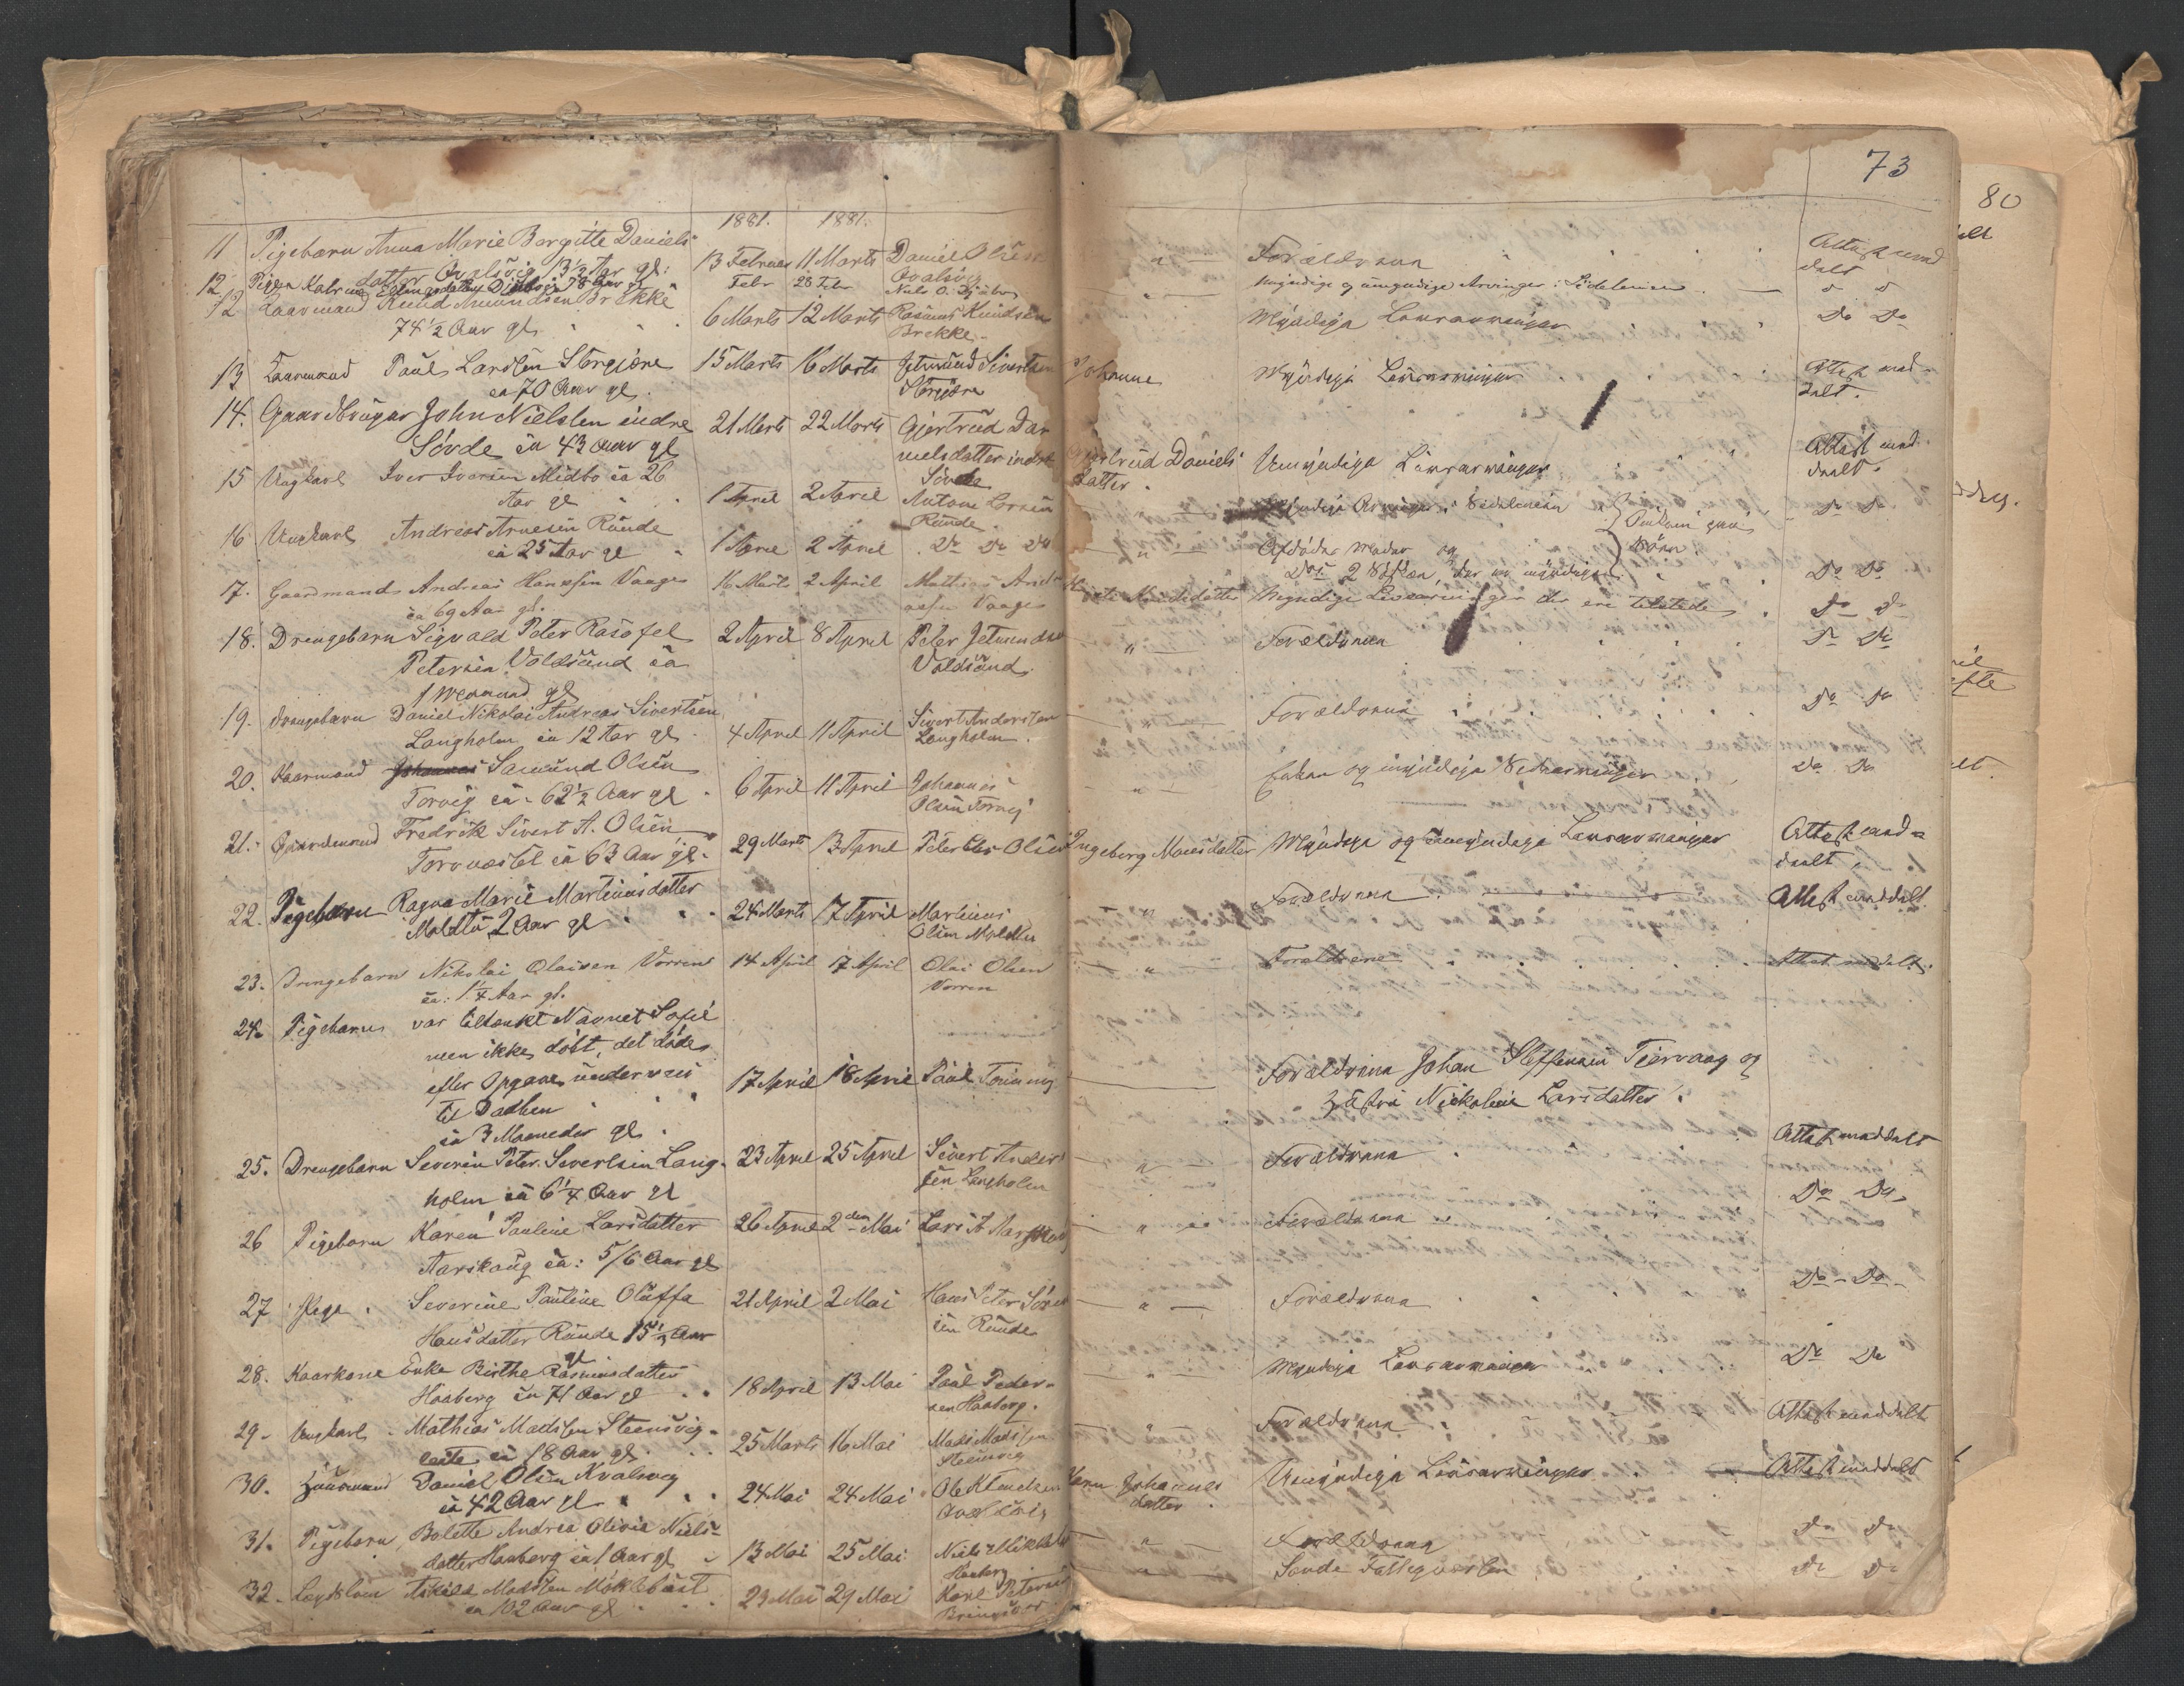 73
80
1881. 1881.
11 Pigebarn Anna Marie Bergitte Daniels- 13 Februar 11 Marts Daniel Olsen " Forældrene Attest med
datter Qvalsvig 3 1/2 Aar gl: Qvalsvig delt
12 Pigen Febr 28 Febr Niels O. Myndige og umyndige Arvinger i Sidelinien
12 Kaarmand Knud Amundsen Brekke 6 Marts 12 Marts Rasmus Knudsen Myndige Livsarvinger Do Do
74 1/2 Aar gl. Brekke
13 Kaarmand Paul Larsen Storøre 15 Marts 16 Marts Jetmund Sivertsen Johanne Myndige Livsarvinger Attest med-
ca 70 Aar gl. delt.
14. Gaardbruger John Nielsen indre 21 Marts 22 Marts Gjertrud Dan- Gjertrud Daniels- Umyndige Livsarvinger Attest med-
Sövde ca 43 Aar gl ielsdatter indre datter. deelt.
15 Ungkarl Iver Iversen Midbø ca 26 Sövde
Aar gl 1 April 2 April Antone Larsen Myndige Arvinger i Sidelinien Do Do
Runde
16 Ungkarl Andreas Arnesen Runde 1 April 2 April Do Do Do " Afdødes Moder og
ca 25 Aar gl 2 Søsken, der er myndige Do Do
17. Gaardmand Andreas Hansen Vaage 16 Marts 2 April Mathias Andr- Myndige Livsarvinger der ere tilstede Do Do
ca 69 Aar gl. easen Vaage
18. Drengebarn Sigvald Peter Rasofel 2 April 8 April Peter Jetmundsen " Forældrene Do Do
Petersen Voldsund ca Voldsund.
1 Maaned gl
19. Drengebarn Daniel Nikolai Andreas Sivertsen Sivert Andersen Forældrene Do Do
Langholm ca 12 Aar gl 4 April 11 April Langholm.
20. Kaarmand Johannes Samund Olsen 6 April 11 April Johannes " og myndige Do Do
Torvig ca 62 1/2 Aar gl Olsen Torvig
21. Gaardmand Fredrik Sivert A. Olsen 29 Marts 13 April Peter Olsen Ingeborg Monsdatter Myndige og umyndige Livsarvinger Attest med-
ca 63 Aar gl. deelt
22. Pigebarn Ragna Marie Martinusdatter 24 Marts 17 April Martinus " Forældrene Attest meddelt.
Moldtu 2 Aar gl Olsen Moldtu
23. Drengebarn Nikolai Olaisen Vorren 14 April 17 April Olai Olsen " Forældrene Attest meddelt.
ca: 1 1/4 Aar gl. Vorren
24. Pigebarn var tiltænkt Navnet Sofie
men ikke döbt, det döde
efter Opgave underveis 17 April 18 April Paul Forældrene Johan Steffensen Tjervaag og
til Daaben Hustru Nikoline Larsdatter.
ca 3 Maaneder gl.
25. Drengebarn Severin Peter Severtsen Lang- 23 April 25 April Sivert Ander- " Forældrene Attest meddelt
holm ca 6 1/4 Aar gl sen Langholm
26 Pigebarn Karen Pauline Larsdatter 26 April 2den Mai Lars A Aarskoug " Forældrene Do Do
Aarskoug ca: 5/6 Aar gl
27 Pige Severine Pauline Oluffa 21 April 2 Mai Hans Peter " Forældrene Do Do
Hansdatter Runde 15 1/2 Aar sen Runde
gl
28. Kaarkone Enke Birthe Rasmusdatter 18 April 13 Mai Paul Peder- " Myndige Livsarvinger Do Do
Haaberg ca 71 Aar gl sen Haaberg.
29. Ungkarl Mathias Madsen Steensvig- 25 Marts 16 Mai Mads Madsen " Forældrene Attest meddelt
leite ca 18 Aar gl. Steensvig
30. Husmand Daniel Olsen Kvalsvig 24 Mai 24 Mai Ole Knudsen Johannes- Umyndige Livsarvinger Attest meddelt
ca 42 Aar gl Qvalsvig datter
31. Pigebarn Bolette Andrea Olivia Niels- 13 Mai 25 Mai Niels Mikkelsen " Forældrene Do Do
datter Haaberg ca 1 Aar gl Haaberg
32. Lægdslem Askild Madsen Möklebust 23 Mai 29 Mai Karl Petersen " Sande Fattigvæsen Do Do
ca 102 Aar gl